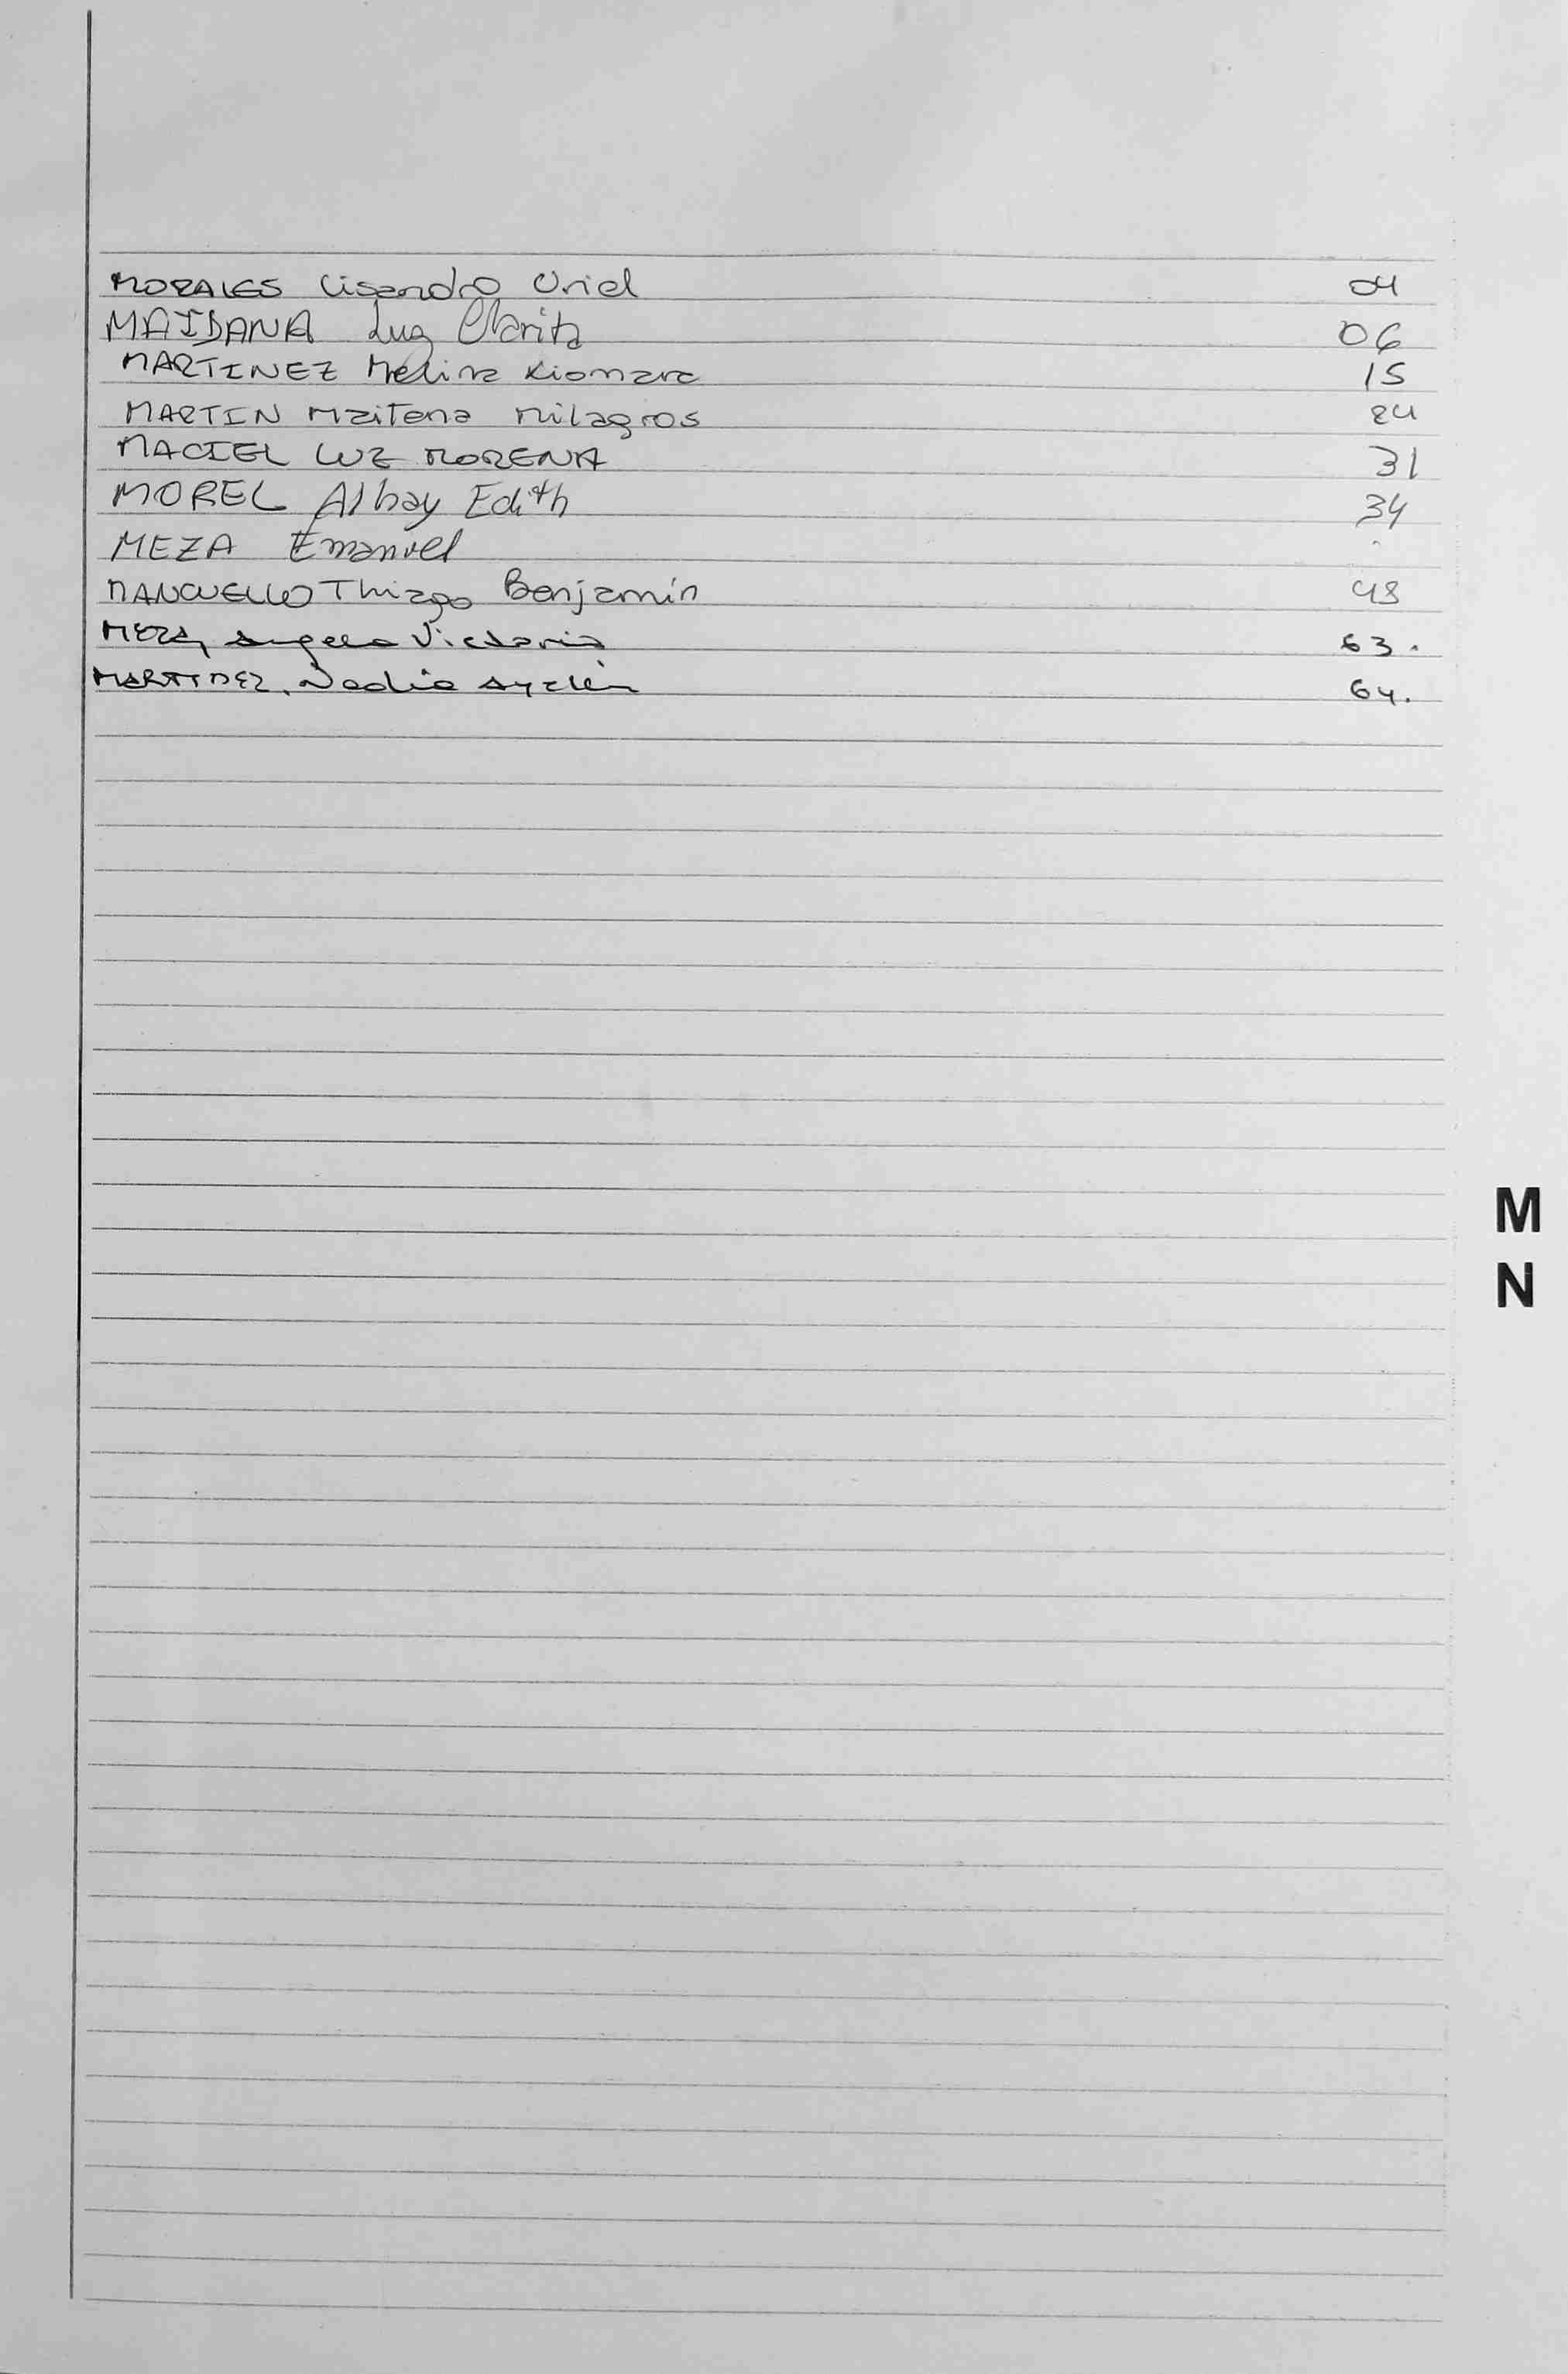 MORALES Lisandro Uriel 04
MAIDANA Luz Clarita 06
MARTINEZ Melina Xiomara 15
MARTIN Maitena Milagros 24
MACIEL LUZ MORENA 31
MOREL Albay Edith 34
MEZA Emanuel
MANCUELLO Thiago Benjamín 48
MEZA, Angela Victoria 63.
MARTINEZ, Nadia Aylén 64.
M
N